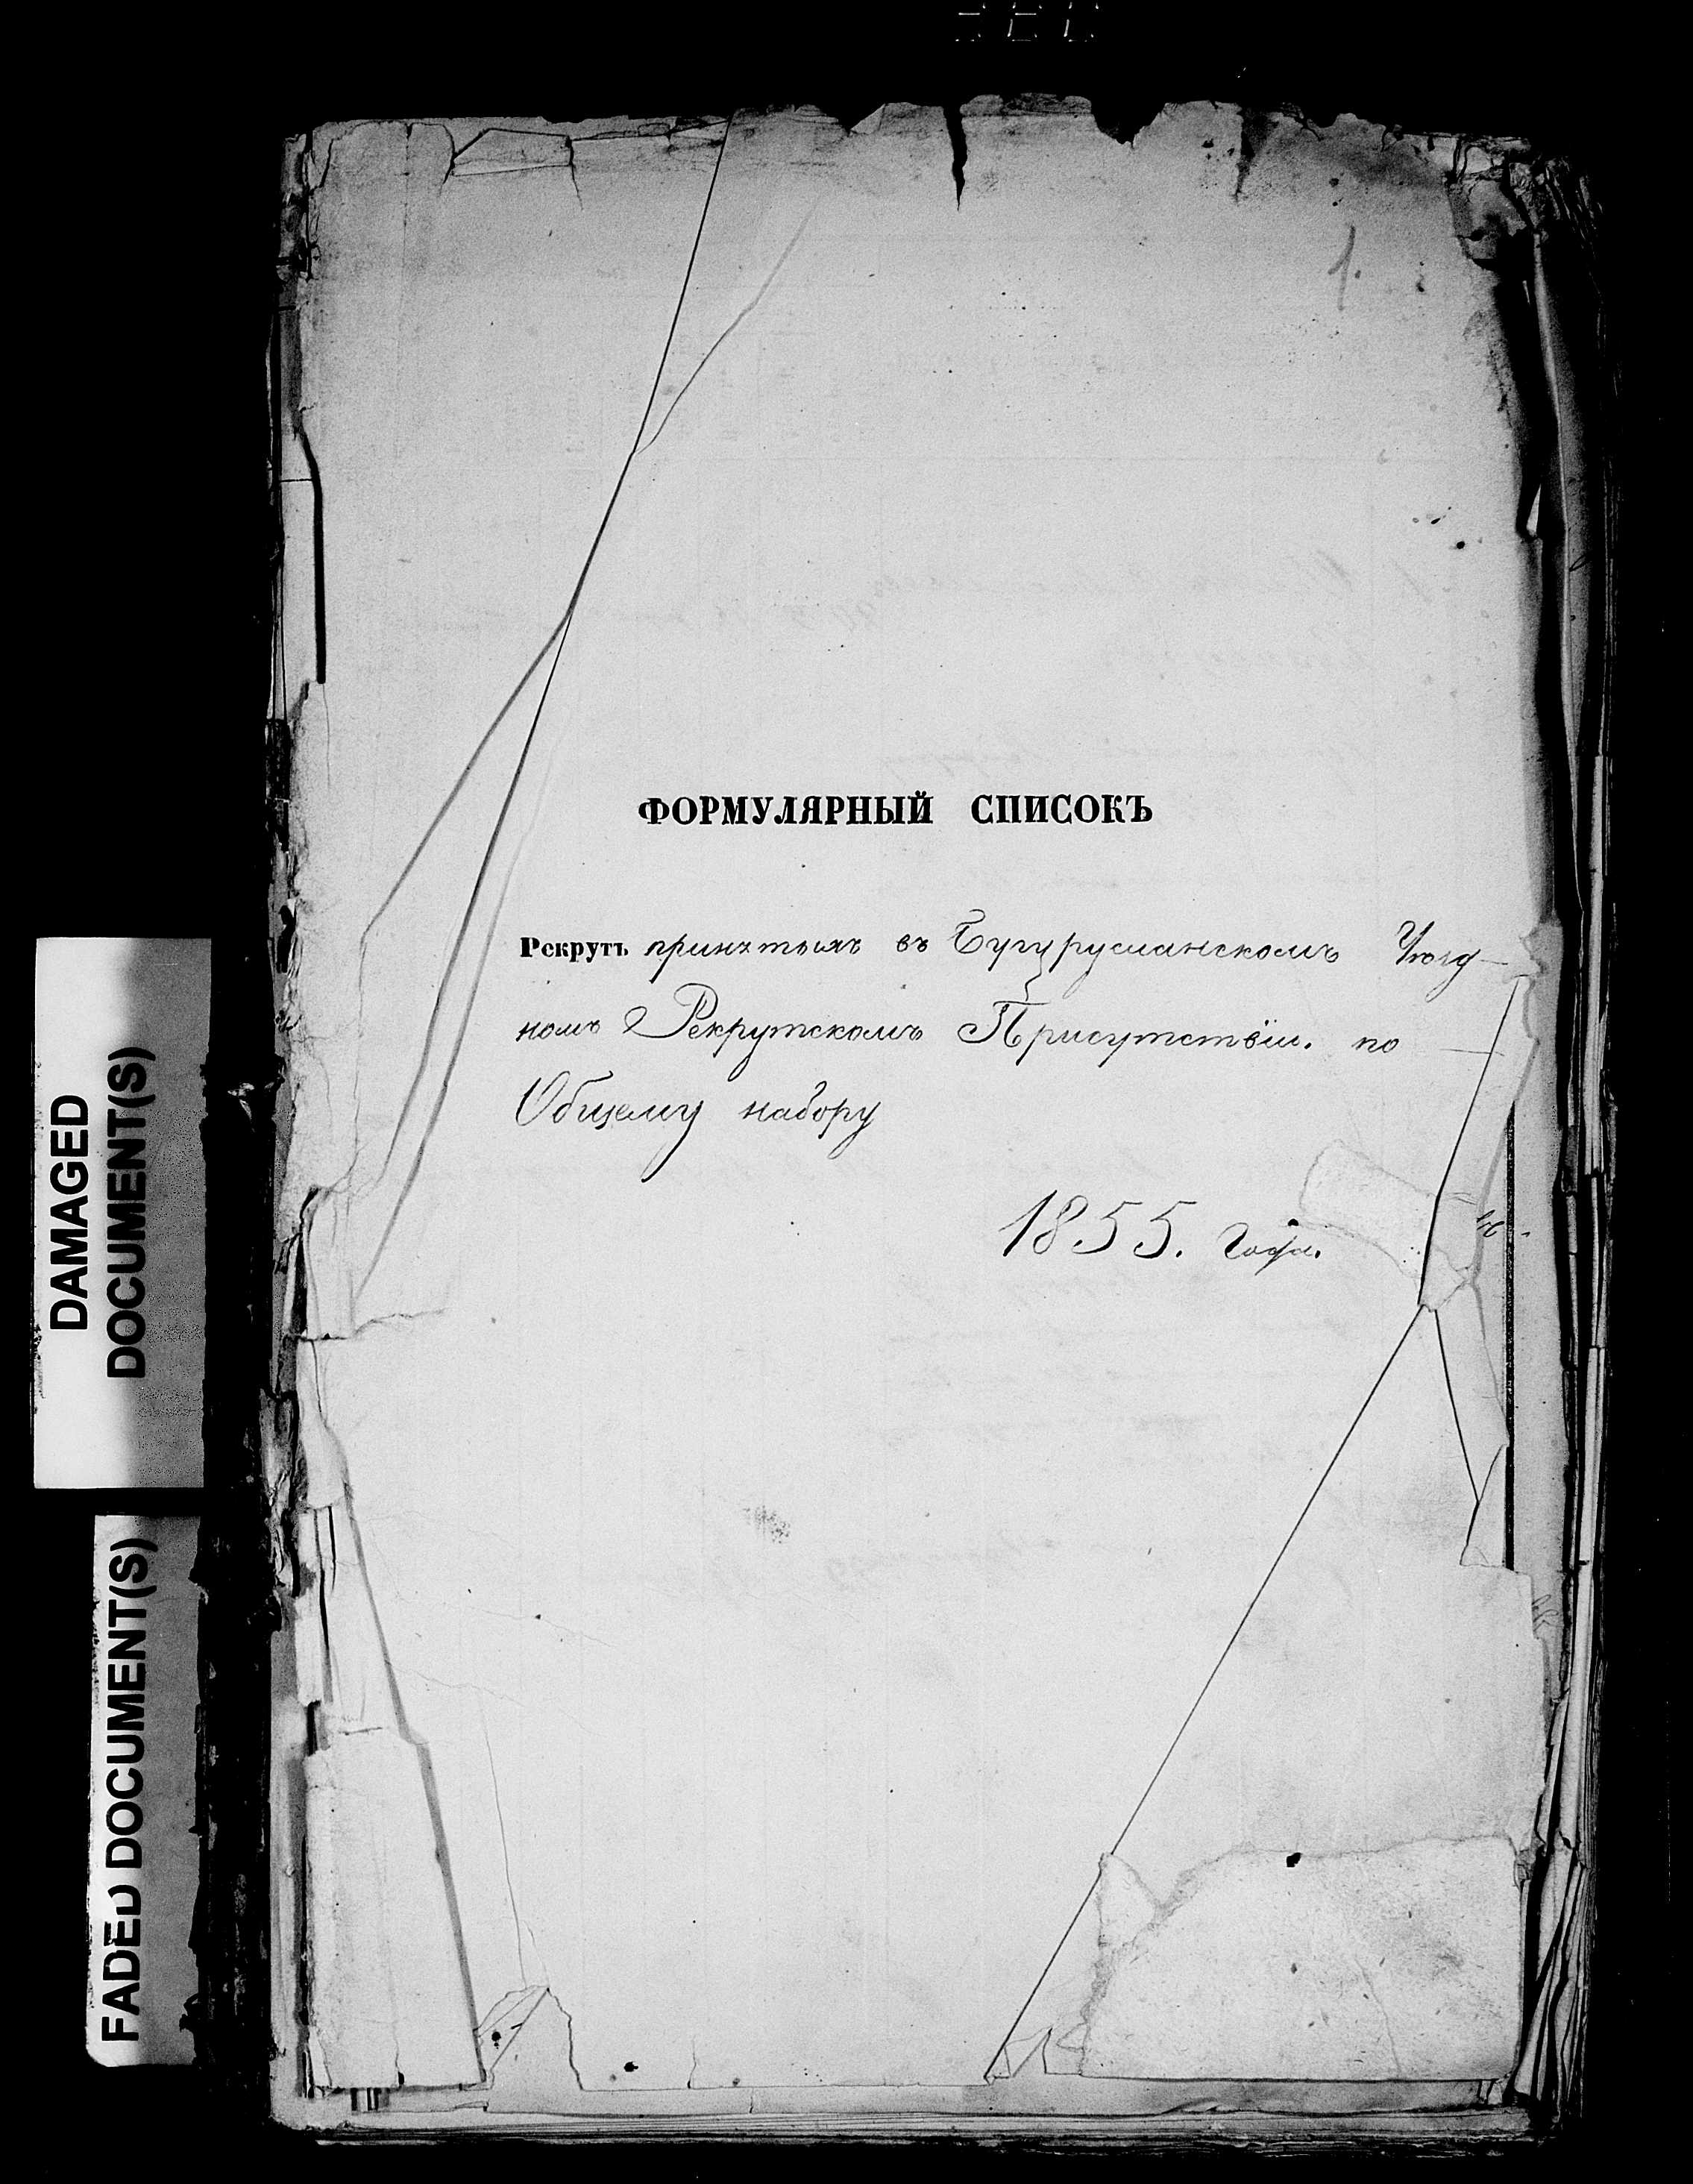 1.
ФОРМУЛЯРНЫЙ СПИСОКЪ
Рекрутъ принятыхъ въ Бугурусланскомъ Уѣзд-
номъ Рекрутскомъ Присутствіи. по
Общему набору
1855. Года.
DAMAGED
DOCUMENT(S)
FADED DOCUMENT(S)